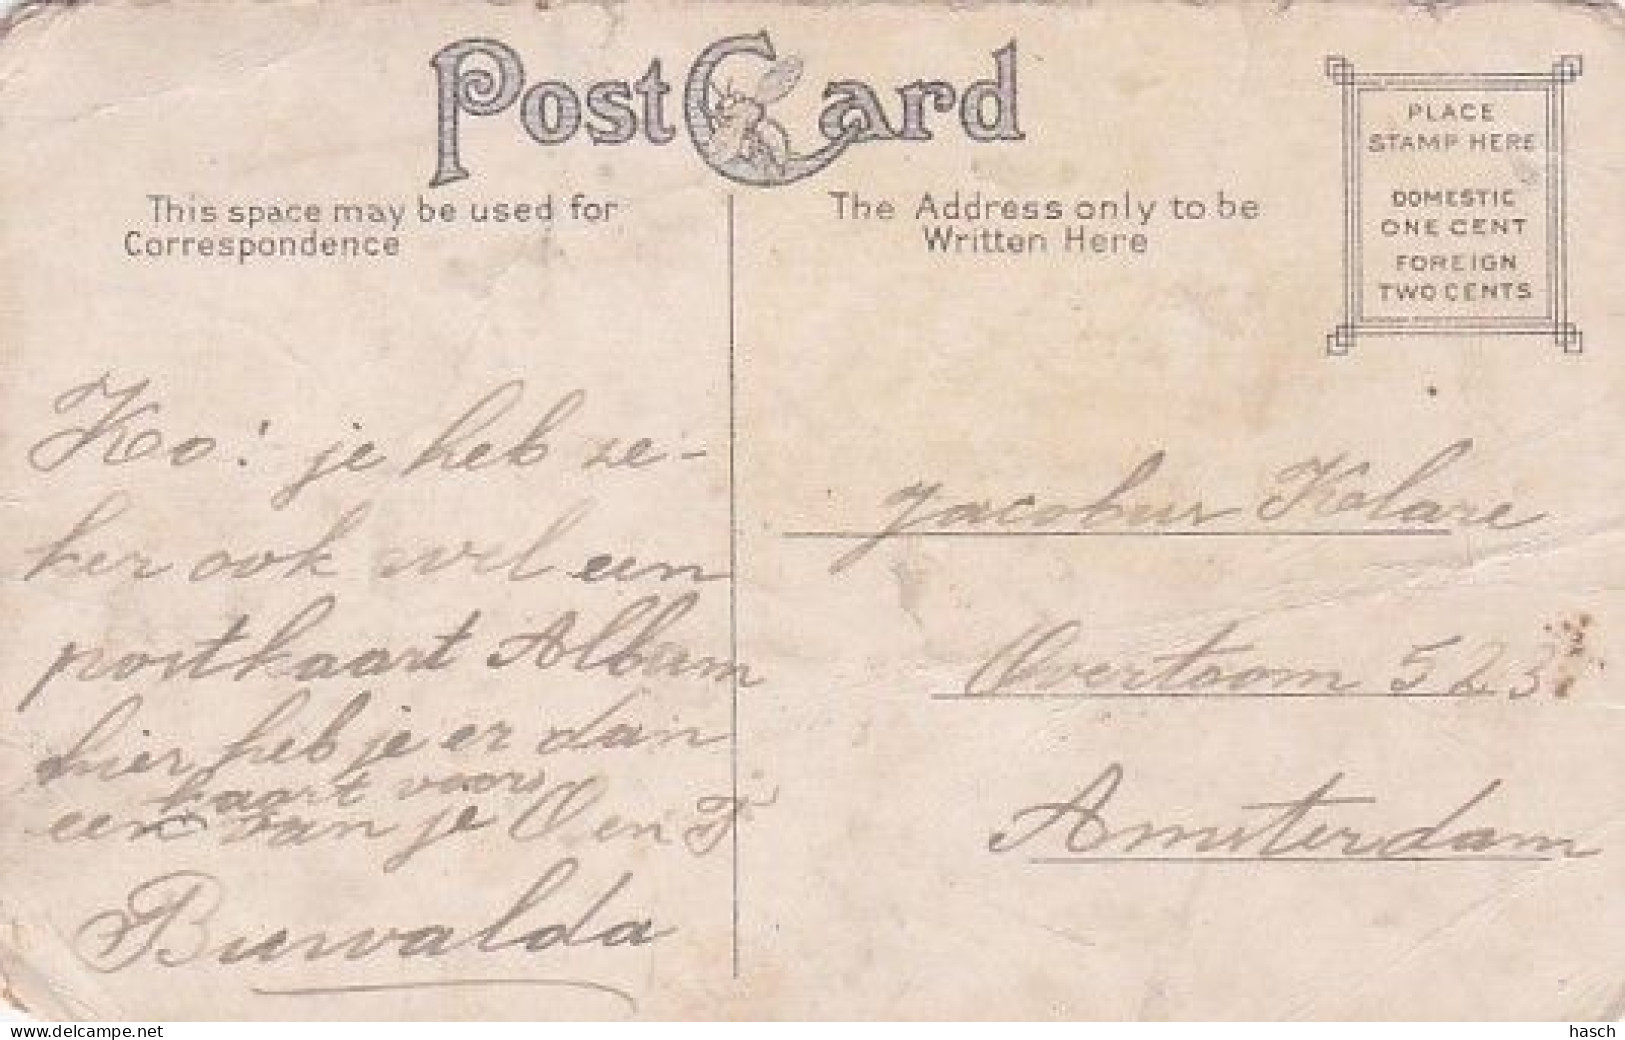 Post Card
This space may be used for
Correspondence
The Address only to be
Written Here
PLACE
STAMP HERE
DOMESTIC
ONE CENT
FOREIGN
TWO CENTS
Ko! je heb ze-
ker ook wel een
postkaart Album
hier heb je er dan
een kaart voor
van je O en T
Buwalda
Jacobus Klare
Overtoom 523
Amsterdam
www.delcampe.net
hasch